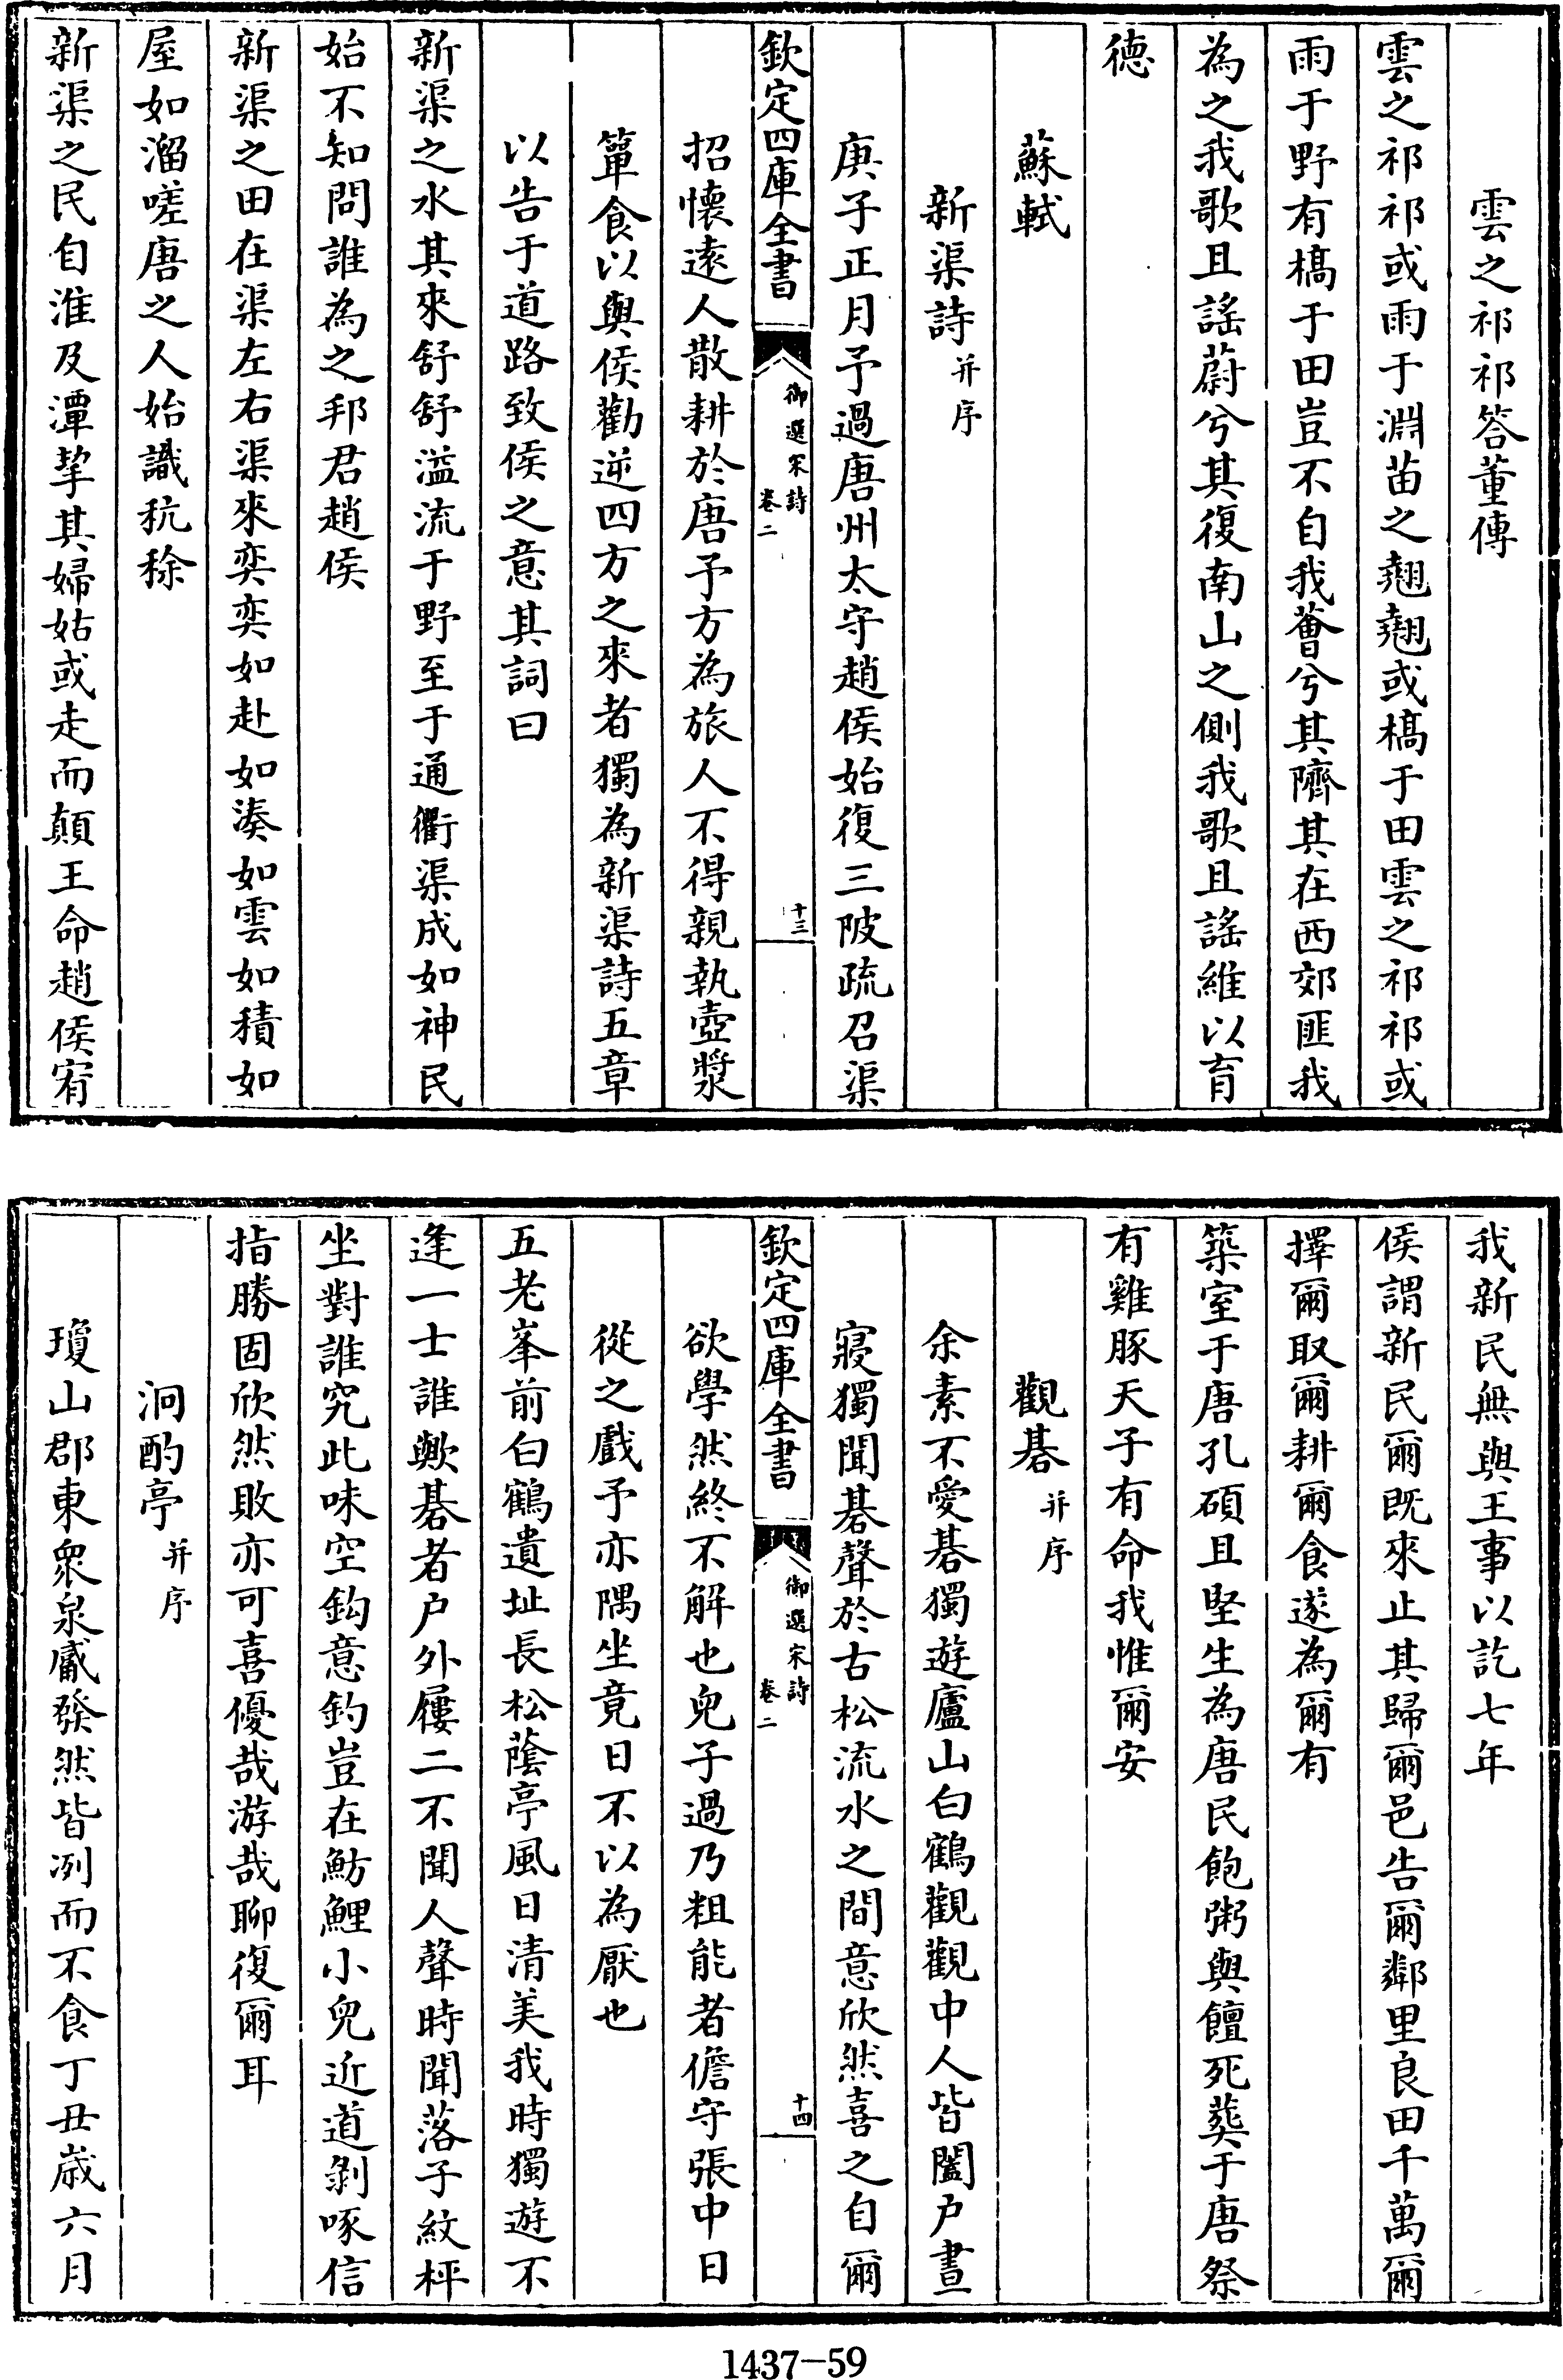 雲之祁祁答董傳
雲之祁祁或雨于淵苗之翹翹或槁于田雲之祁祁或
雨于野有槁于田豈不自我薈兮其隮其在西郊匪我
為之我歌且謠蔚兮其復南山之側我歌且謠維以育
德
蘇軾
新渠詩并序
庚子正月予過唐州太守趙侯始復三陂疏召渠
欽定四庫全書
御選宋詩
卷二
十三
招懷遠人散耕於唐予方為旅人不得親執壺漿
簞食以與侯勸逆四方之來者獨為新渠詩五章
以告于道路致侯之意其詞曰
新渠之水其來舒舒溢流于野至于通衢渠成如神民
始不知問誰為之邦君趙侯
新渠之田在渠左右渠來奕奕如赴如湊如雲如積如
屋如溜嗟唐之人始識秔稌
新渠之民自淮及潭挈其婦姑或走而顛王命趙侯宥
我新民無與王事以訖七年
侯謂新民爾既來止其歸爾邑告爾鄰里良田千萬爾
擇爾取爾耕爾食遂為爾有
築室于唐孔碩且堅生為唐民飽粥與饘死葬于唐祭
有雞豚天子有命我惟爾安
觀棊并序
余素不愛棊獨遊廬山白鶴觀觀中人皆闔户晝
寢獨聞棊聲於古松流水之間意欣然喜之自爾
欽定四庫全書
御選宋詩
卷二
十四
欲學然終不解也兒子過乃粗能者儋守張中日
從之戲予亦隅坐竟日不以為厭也
五老峯前白鶴遺址長松蔭亭風日清美我時獨遊不
逢一士誰歟棊者户外屨二不聞人聲時聞落子紋枰
坐對誰究此味空鈎意釣豈在魴鯉小兒近道剝啄信
指勝固欣然敗亦可喜優哉游哉聊復爾耳
泂酌亭并序
瓊山郡東衆泉觱發然皆冽而不食丁丑歳六月
1437-59